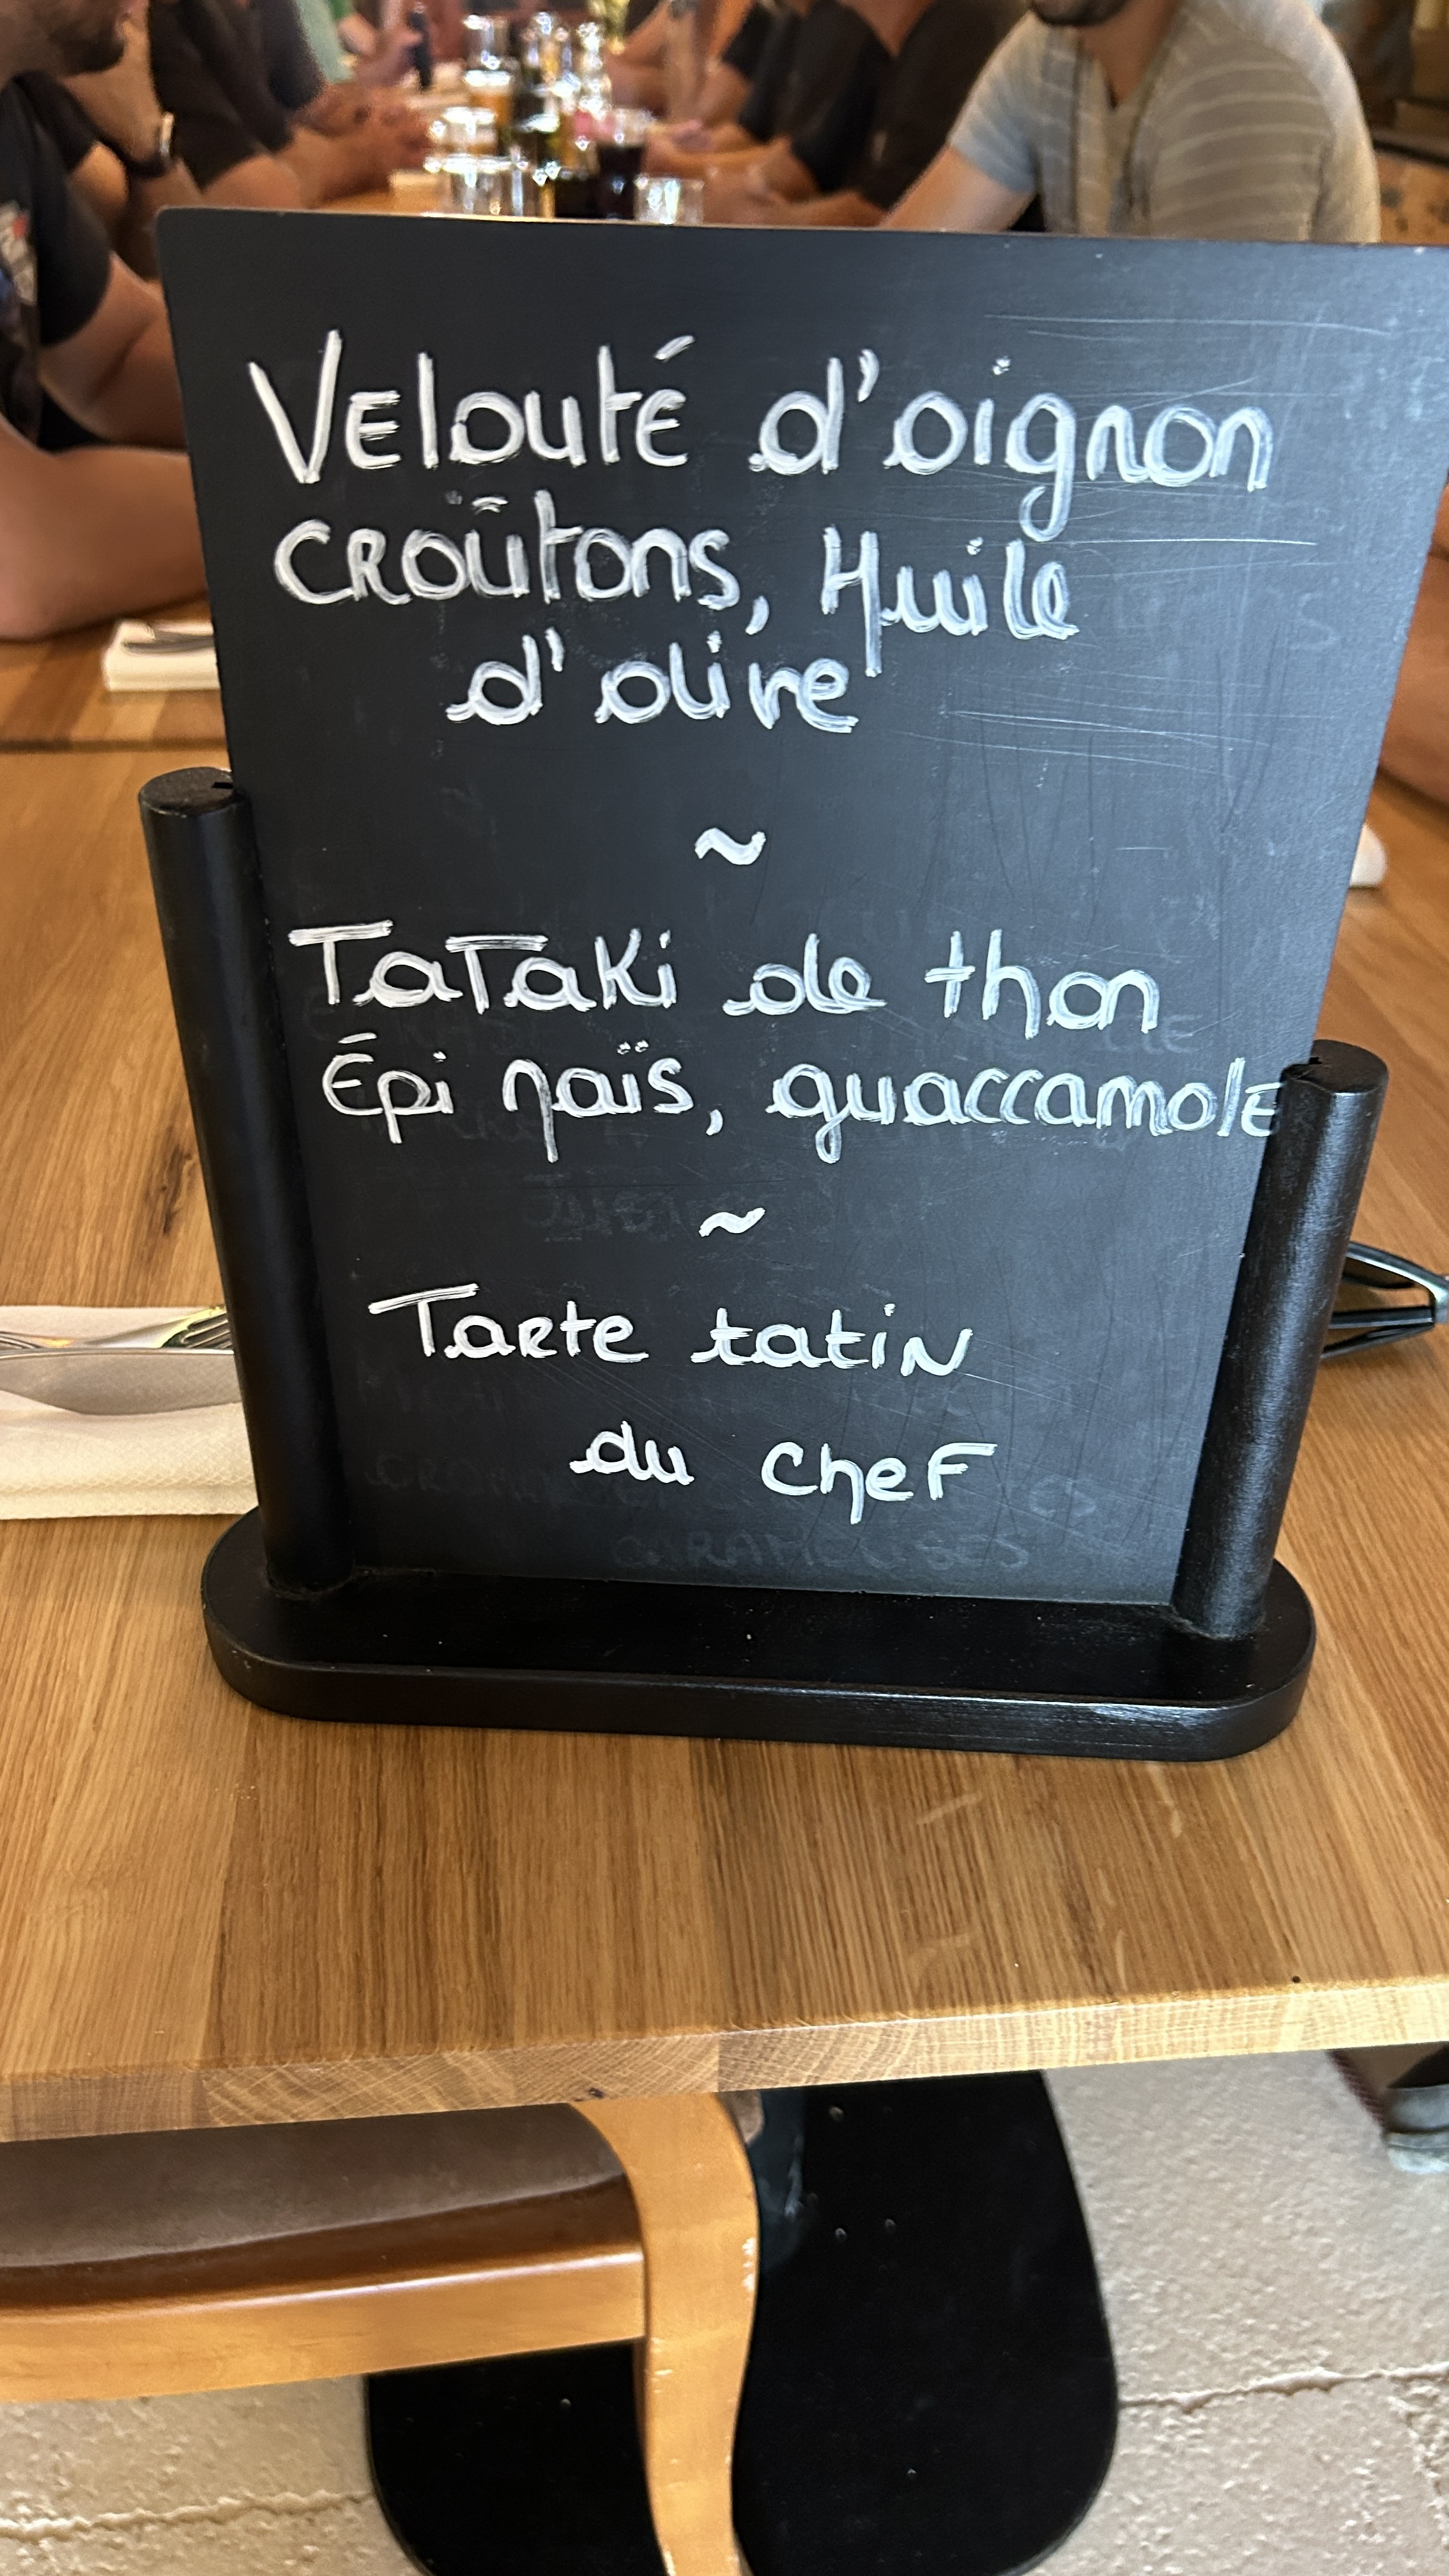 Velouté d'oignon
croûtons, Huile
d'olive
~
Tataki de thon
Épi maïs, guaccamole
~
Tarte tatin
du chef